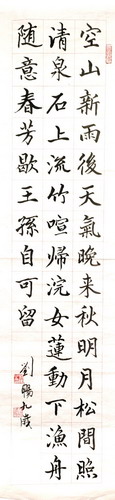 空山新雨後天氣晚来秋明月松間照
清泉石上流竹喧帰浣女蓮動下漁舟
随意春芳歇王孫自可留
劉暢九歲